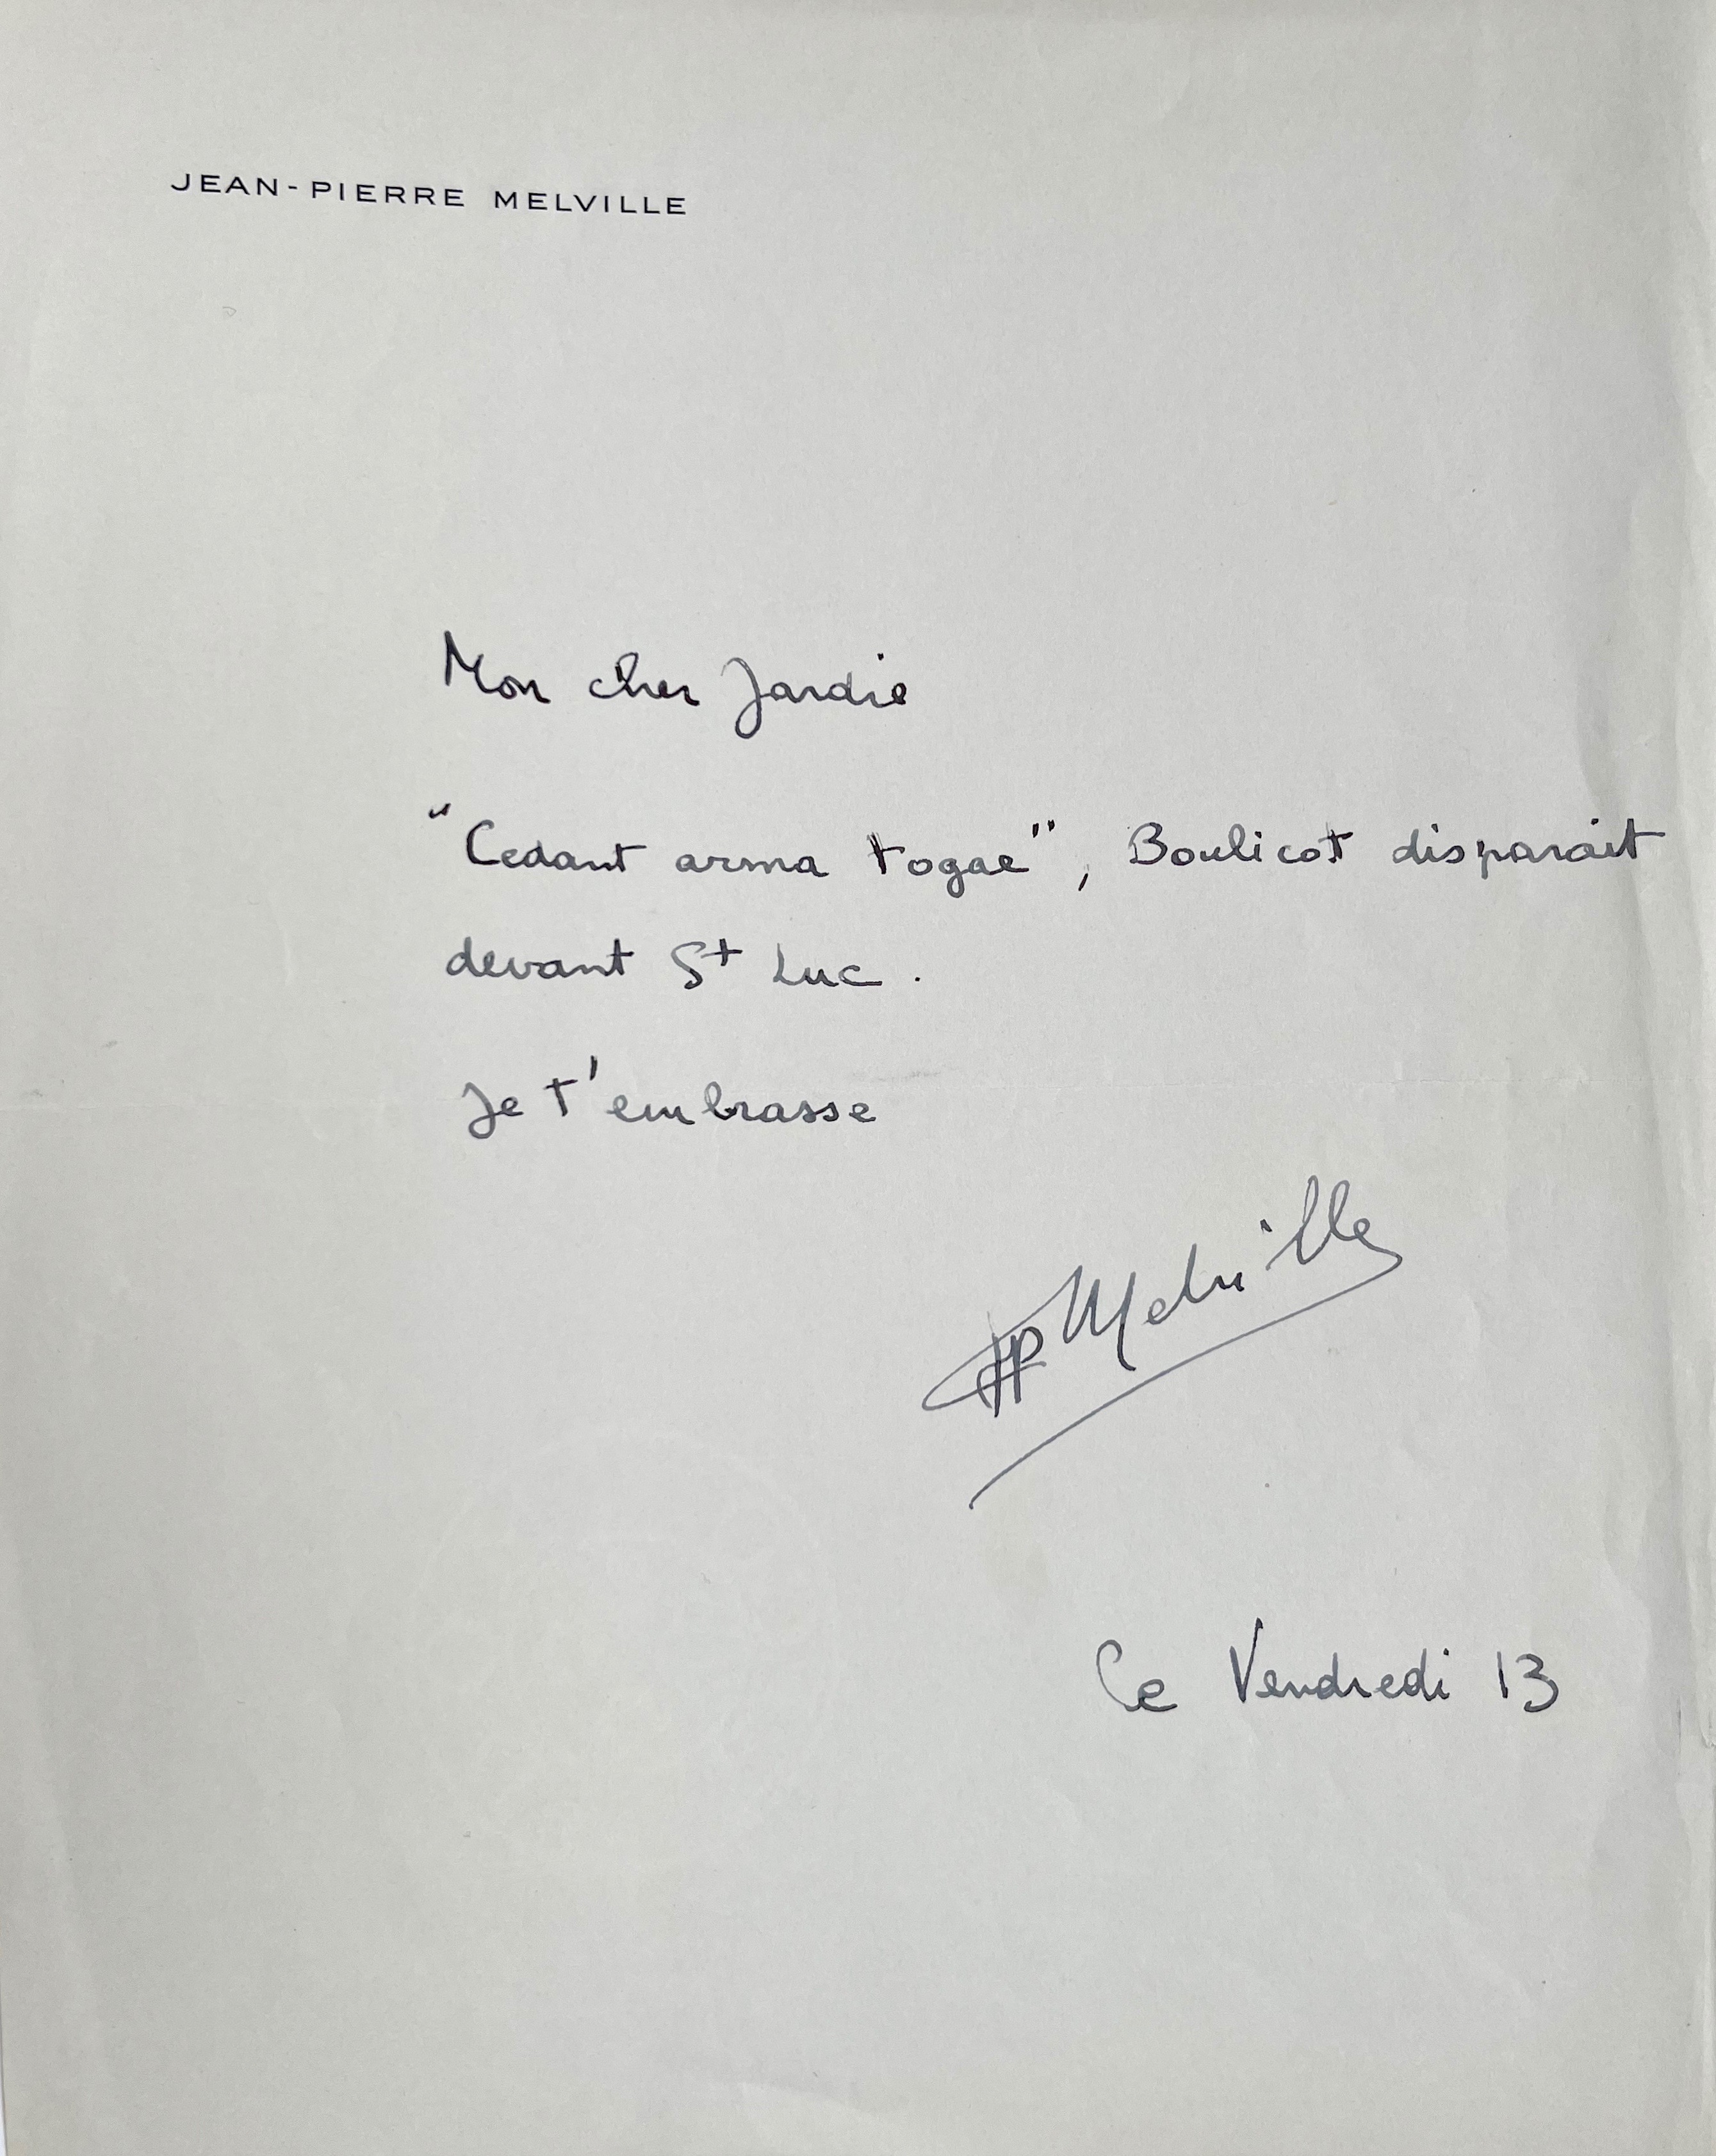 JEAN-PIERRE MELVILLE
Mon cher Jardie
"Cedant arma togae", Boulicot disparait
devant St Luc.
Je t'embrasse
JP Melville
Ce Vendredi 13